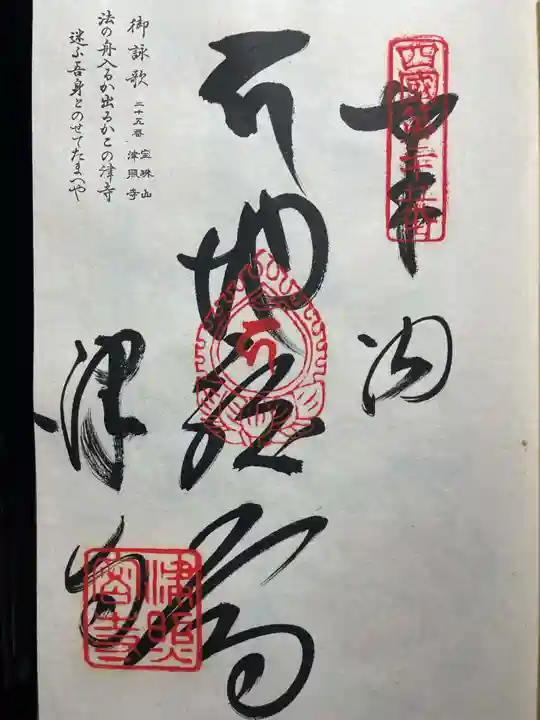 四國第二十五番
奉納
地蔵尊
津寺
津照
御詠歌 二十五番 宝珠山 津照寺
法の舟入るか出るかこの津寺
迷ふ吾身をのせてたまへや